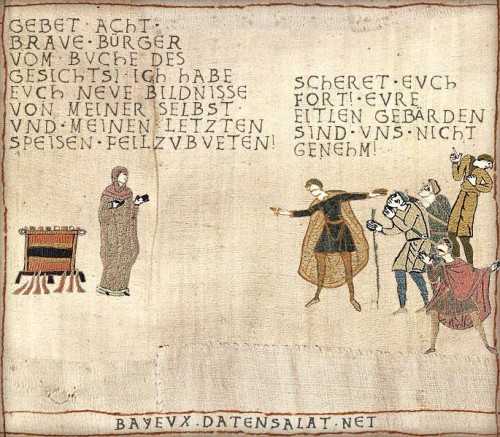 GEBET · ACHT ·
BRAVE · BÜRGER
VOM · BVCHE · DES
GESICHTS! · ICH · HABE
EVCH · NEVE · BILDNISSE
VON · MEINER · SELBST ·
VND · MEINEN · LETZTEN
SPEISEN · FEILZVBVETEN!
SCHERET · EVCH
FORT! · EVRE
EITLEN · GEBÄRDEN
SIND · VNS · NICHT
GENEHM!
BAYEVX · DATENSALAT · NET